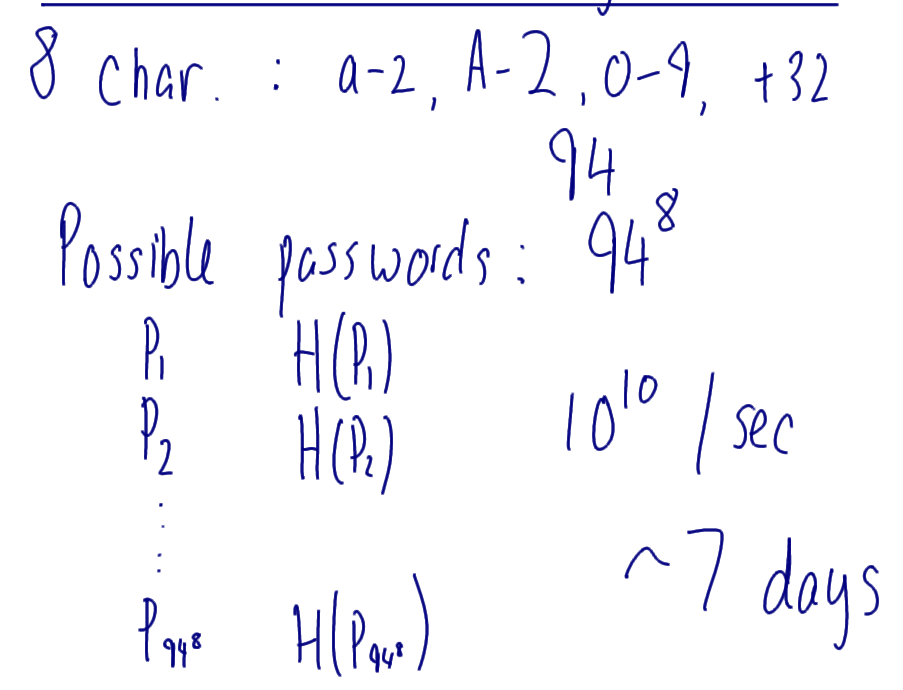 8 char. : a-z, A-Z, 0-9, +32
94
Possible passwords : 94⁸
P₁ H(P₁)
P₂ H(P₂) 10¹⁰ / sec
⋮
~7 days
P₉₄⁸ H(P₉₄⁸)